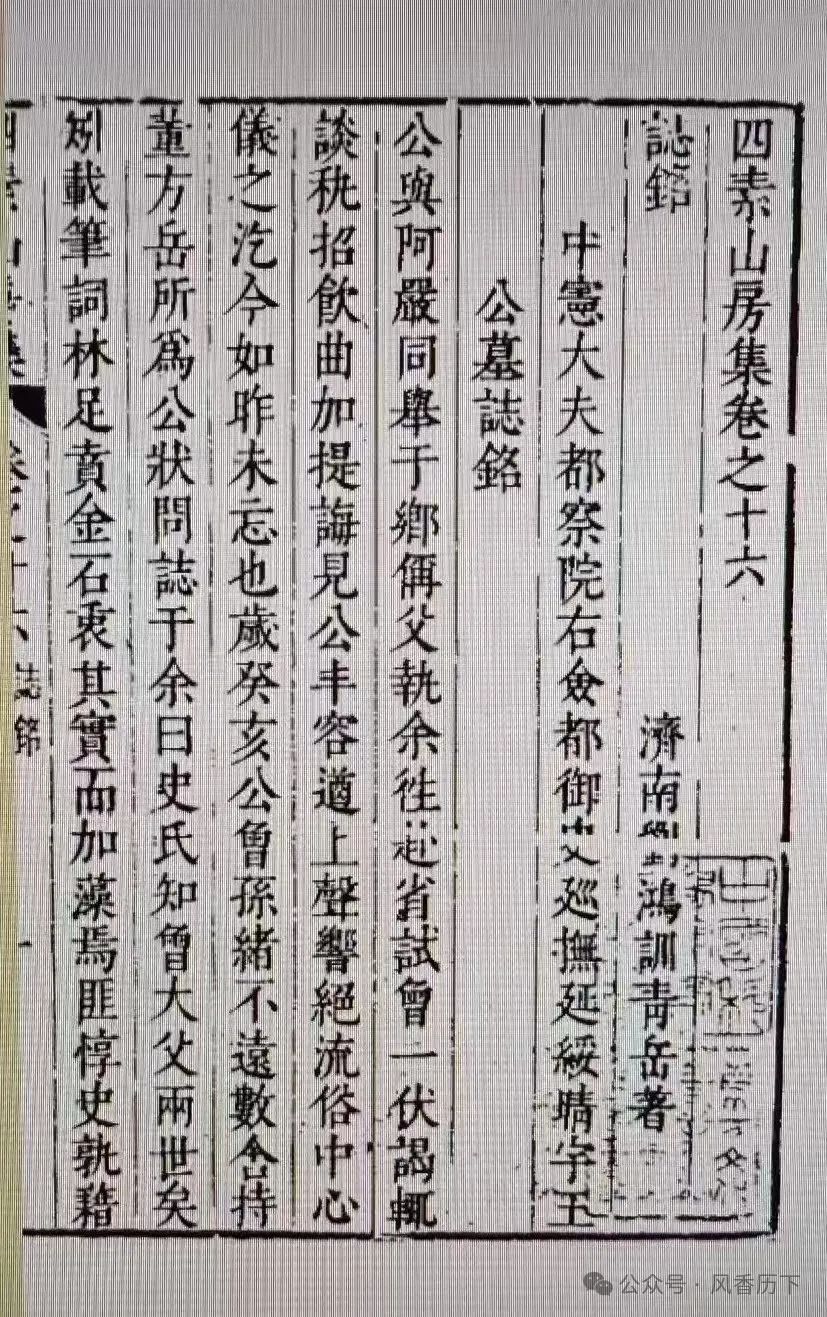 四素山房集卷之十六
誌銘
濟南劉鴻訓青岳著
中憲大夫都察院右僉都御史廵撫延綏晴宇王
公墓誌銘
公與阿嚴同舉于鄉偁父執余徃赴省試曾一伏謁輒
談秇招飲曲加提誨見公丰容遒上聲響絕流俗中心
儀之汔今如昨未忘也歲癸亥公曾孫緒不遠數舍持
董方岳所爲公狀問誌于余曰史氏知曾大父兩世矣
矧載筆詞林足賁金石衷其實而加藻焉匪惇史孰藉
卷之十六 誌銘 一
公众号·风香历下